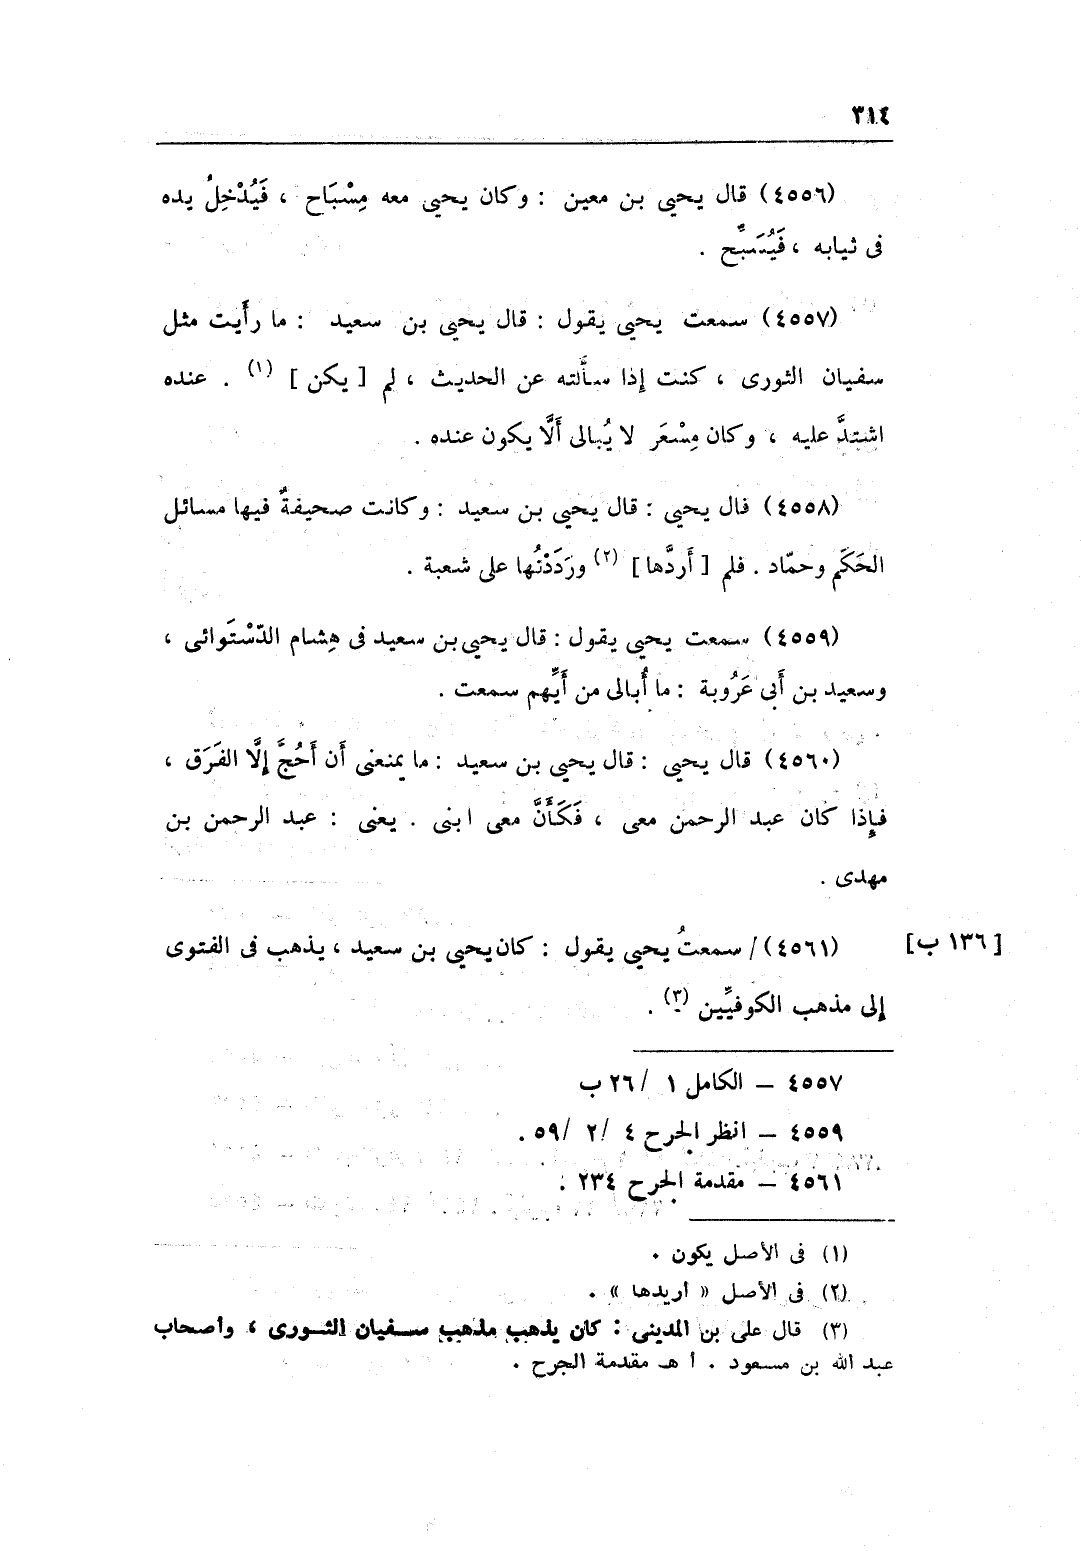 ٣١٤
(٤٥٥٦) قال يحيى بن معين : وكان يحيى معه مِسْبَاح ، فَيُدْخِلُ يده
فى ثيابه ، فَيُسَبِّح .
(٤٥٥٧) سمعت يحيى يقول : قال يحيى بن سعيد : ما رأَيت مثل
سفيان الثورى ، كنت إذا سأَلته عن الحديث ، لم [ يكن ] (١) . عنده
اشتدَّ عليه ، وكان مِسْعَر لا يُبالى أَلَّا يكون عنده .
(٤٥٥٨) قال يحيى : قال يحيى بن سعيد : وكانت صحيفةٌ فيها مسائل
الحَكَم وحمّاد . فلم [ أَردَّها ] (٢) ورَدَدْتُها على شعبة .
(٤٥٥٩) سمعت يحيى يقول : قال يحيى بن سعيد فى هِشام الدّسْتَوائى ،
وسعيد بن أَبى عَرُوبة : ما أُبالى من أَيِّهم سمعت .
(٤٥٦٠) قال يحيى : قال يحيى بن سعيد : ما يمنعنى أَن أَحُجَّ إِلَّا الفَرَق ،
فإِذا كان عبد الرحمن معى ، فَكَأَنَّ معى ابنى . يعنى : عبد الرحمن بن
مهدى .
[ ١٣٦ ب] (٤٥٦١) / سمعتُ يحيى يقول : كان يحيى بن سعيد ، يذهب فى الفتوى
إِلى مذهب الكوفيِّين (٣) .
٤٥٥٧ – الكامل ١ /٢٦ ب
٤٥٥٩ – انظر الجرح ٤ /٢ /٥٩ .
٤٥٦١ – مقدمة الجرح ٢٣٤ .
(١) فى الأصل يكون .
(٢) فى الأصل « أريدها » .
(٣) قال على بن المدينى : كان يذهب مذهب سفيان الثورى ، وأصحاب
عبد الله بن مسعود . أ هـ مقدمة الجرح .